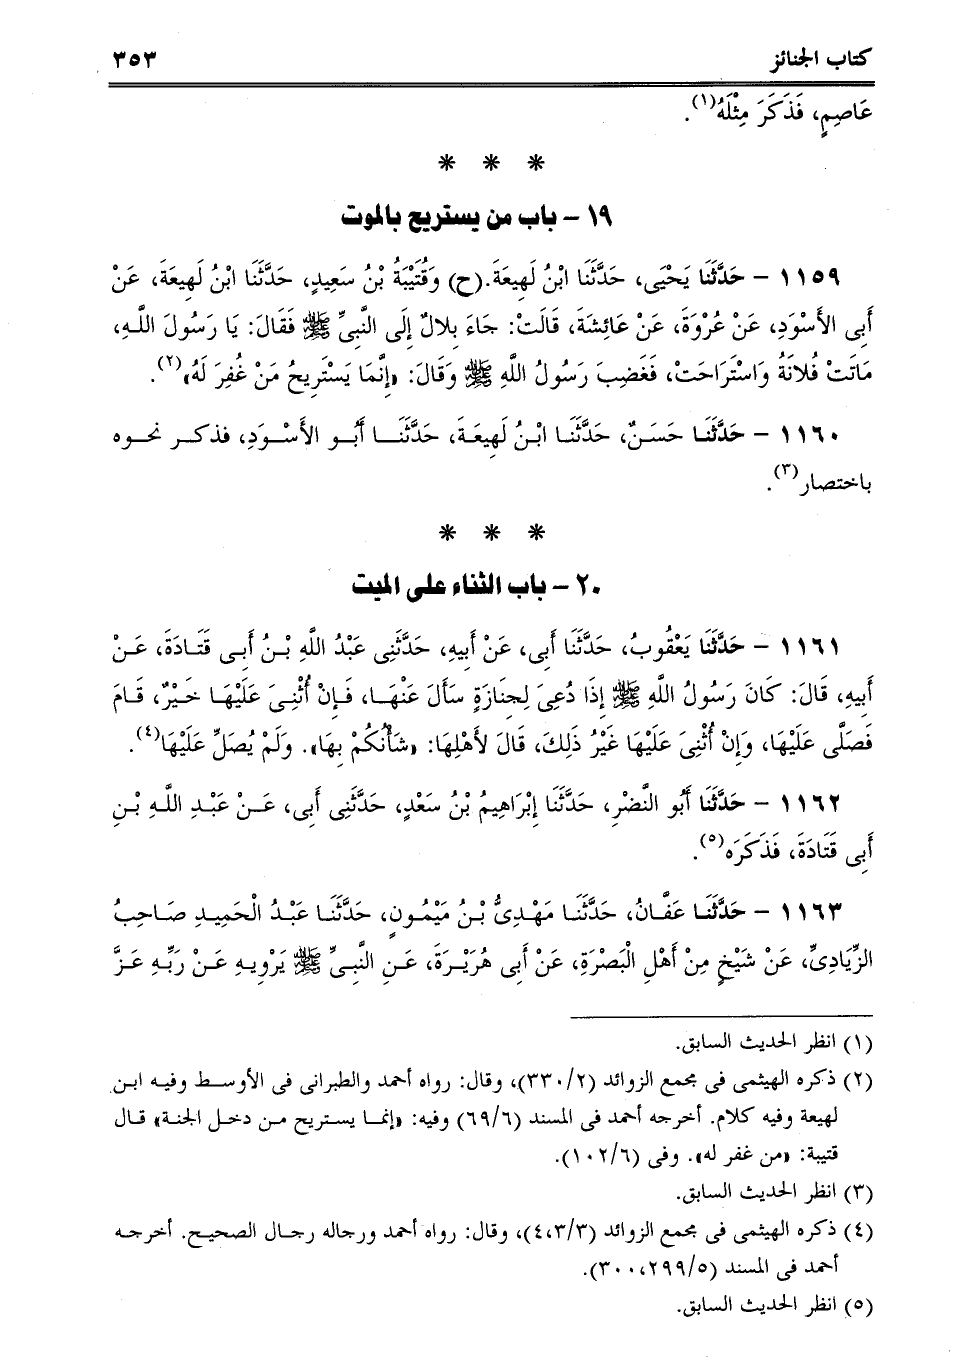 كتاب الجنائز ٣٥٣
عَاصِمٍ، فَذَكَرَ مِثْلَهُ(١).
* * *
١٩ – باب من يستريح بالموت
١١٥٩ – حَدَّثَنَا يَحْيَى، حَدَّثَنَا ابْنُ لَهِيعَةَ.(ح) وَقُتَيْبَةُ بْنُ سَعِيدٍ، حَدَّثَنَا ابْنُ لَهِيعَةَ، عَنْ
أَبِى الأَسْوَدِ، عَنْ عُرْوَةَ، عَنْ عَائِشَةَ، قَالَتْ: جَاءَ بِلالٌ إِلَى النَّبِىِّ ﷺ فَقَالَ: يَا رَسُولَ اللَّهِ،
مَاتَتْ فُلانَةُ وَاسْتَرَاحَتْ، فَغَضِبَ رَسُولُ اللَّهِ ﷺ وَقَالَ: «إِنَّمَا يَسْتَرِيحُ مَنْ غُفِرَ لَهُ»(٢).
١١٦٠ – حَدَّثَنَا حَسَنٌ، حَدَّثَنَا ابْنُ لَهِيعَةَ، حَدَّثَنَا أَبُو الأَسْوَدِ، فذكر نحوه
باختصار(٣).
* * *
٢٠ – باب الثناء على الميت
١١٦١ – حَدَّثَنَا يَعْقُوبُ، حَدَّثَنَا أَبِى، عَنْ أَبِيهِ، حَدَّثَنِى عَبْدُ اللَّهِ بْنُ أَبِى قَتَادَةَ، عَنْ
أَبِيهِ، قَالَ: كَانَ رَسُولُ اللَّهِ ﷺ إِذَا دُعِىَ لِجِنَازَةٍ سَأَلَ عَنْهَا، فَإِنْ أُثْنِىَ عَلَيْهَا خَيْرٌ، قَامَ
فَصَلَّى عَلَيْهَا، وَإِنْ أُثْنِىَ عَلَيْهَا غَيْرُ ذَلِكَ، قَالَ لأَهْلِهَا: «شَأْنُكُمْ بِهَا». وَلَمْ يُصَلِّ عَلَيْهَا(٤).
١١٦٢ – حَدَّثَنَا أَبُو النَّضْرِ، حَدَّثَنَا إِبْرَاهِيمُ بْنُ سَعْدٍ، حَدَّثَنِى أَبِى، عَنْ عَبْدِ اللَّهِ بْنِ
أَبِى قَتَادَةَ، فَذَكَرَه(٥).
١١٦٣ – حَدَّثَنَا عَفَّانُ، حَدَّثَنَا مَهْدِىُّ بْنُ مَيْمُونٍ، حَدَّثَنَا عَبْدُ الْحَمِيدِ صَاحِبُ
الزِّيَادِىِّ، عَنْ شَيْخٍ مِنْ أَهْلِ الْبَصْرَةِ، عَنْ أَبِى هُرَيْرَةَ، عَنِ النَّبِىِّ ﷺ يَرْوِيهِ عَنْ رَبِّهِ عَزَّ
(١) انظر الحديث السابق.
(٢) ذكره الهيثمى فى مجمع الزوائد (٣٣٠/٢)، وقال: رواه أحمد والطبرانى فى الأوسط وفيه ابن
لهيعة وفيه كلام. أخرجه أحمد فى المسند (٦٩/٦) وفيه: «إنما يستريح من دخل الجنة» قال
قتيبة: «من غفر له». وفى (١٠٢/٦).
(٣) انظر الحديث السابق.
(٤) ذكره الهيثمى فى مجمع الزوائد (٤،٣/٣)، وقال: رواه أحمد ورجاله رجال الصحيح. أخرجه
أحمد فى المسند (٣٠٠،٢٩٩/٥).
(٥) انظر الحديث السابق.